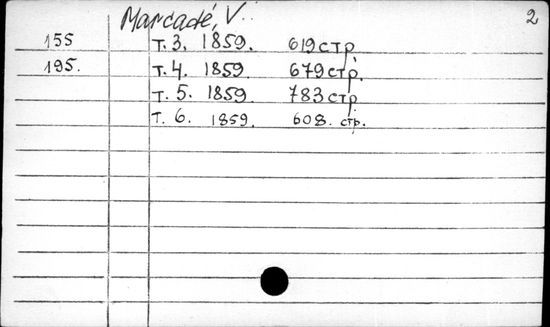 Marcadé, V. 2
155 т. 3. 1859. 619 стр.
195. т. 4. 1859 679 стр.
т. 5. 1859. 783 стр.
т. 6. 1859. 608. стр.